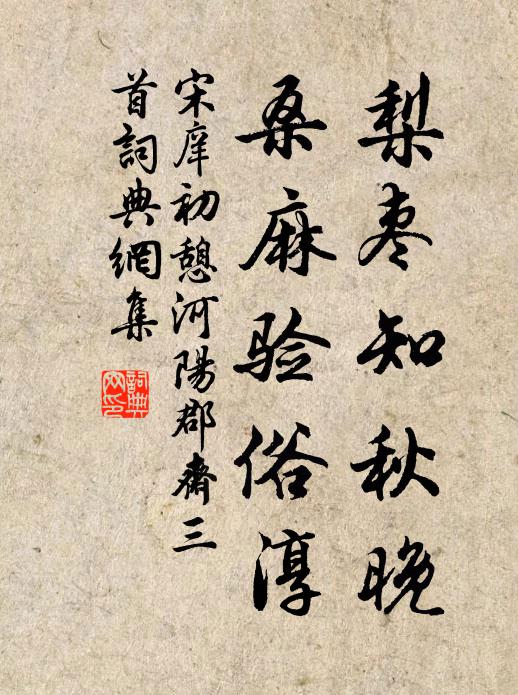 梨枣知秋晚
桑麻验俗淳
宋庠初憩河陽郡齋三
首詞典網集
詞典
网印